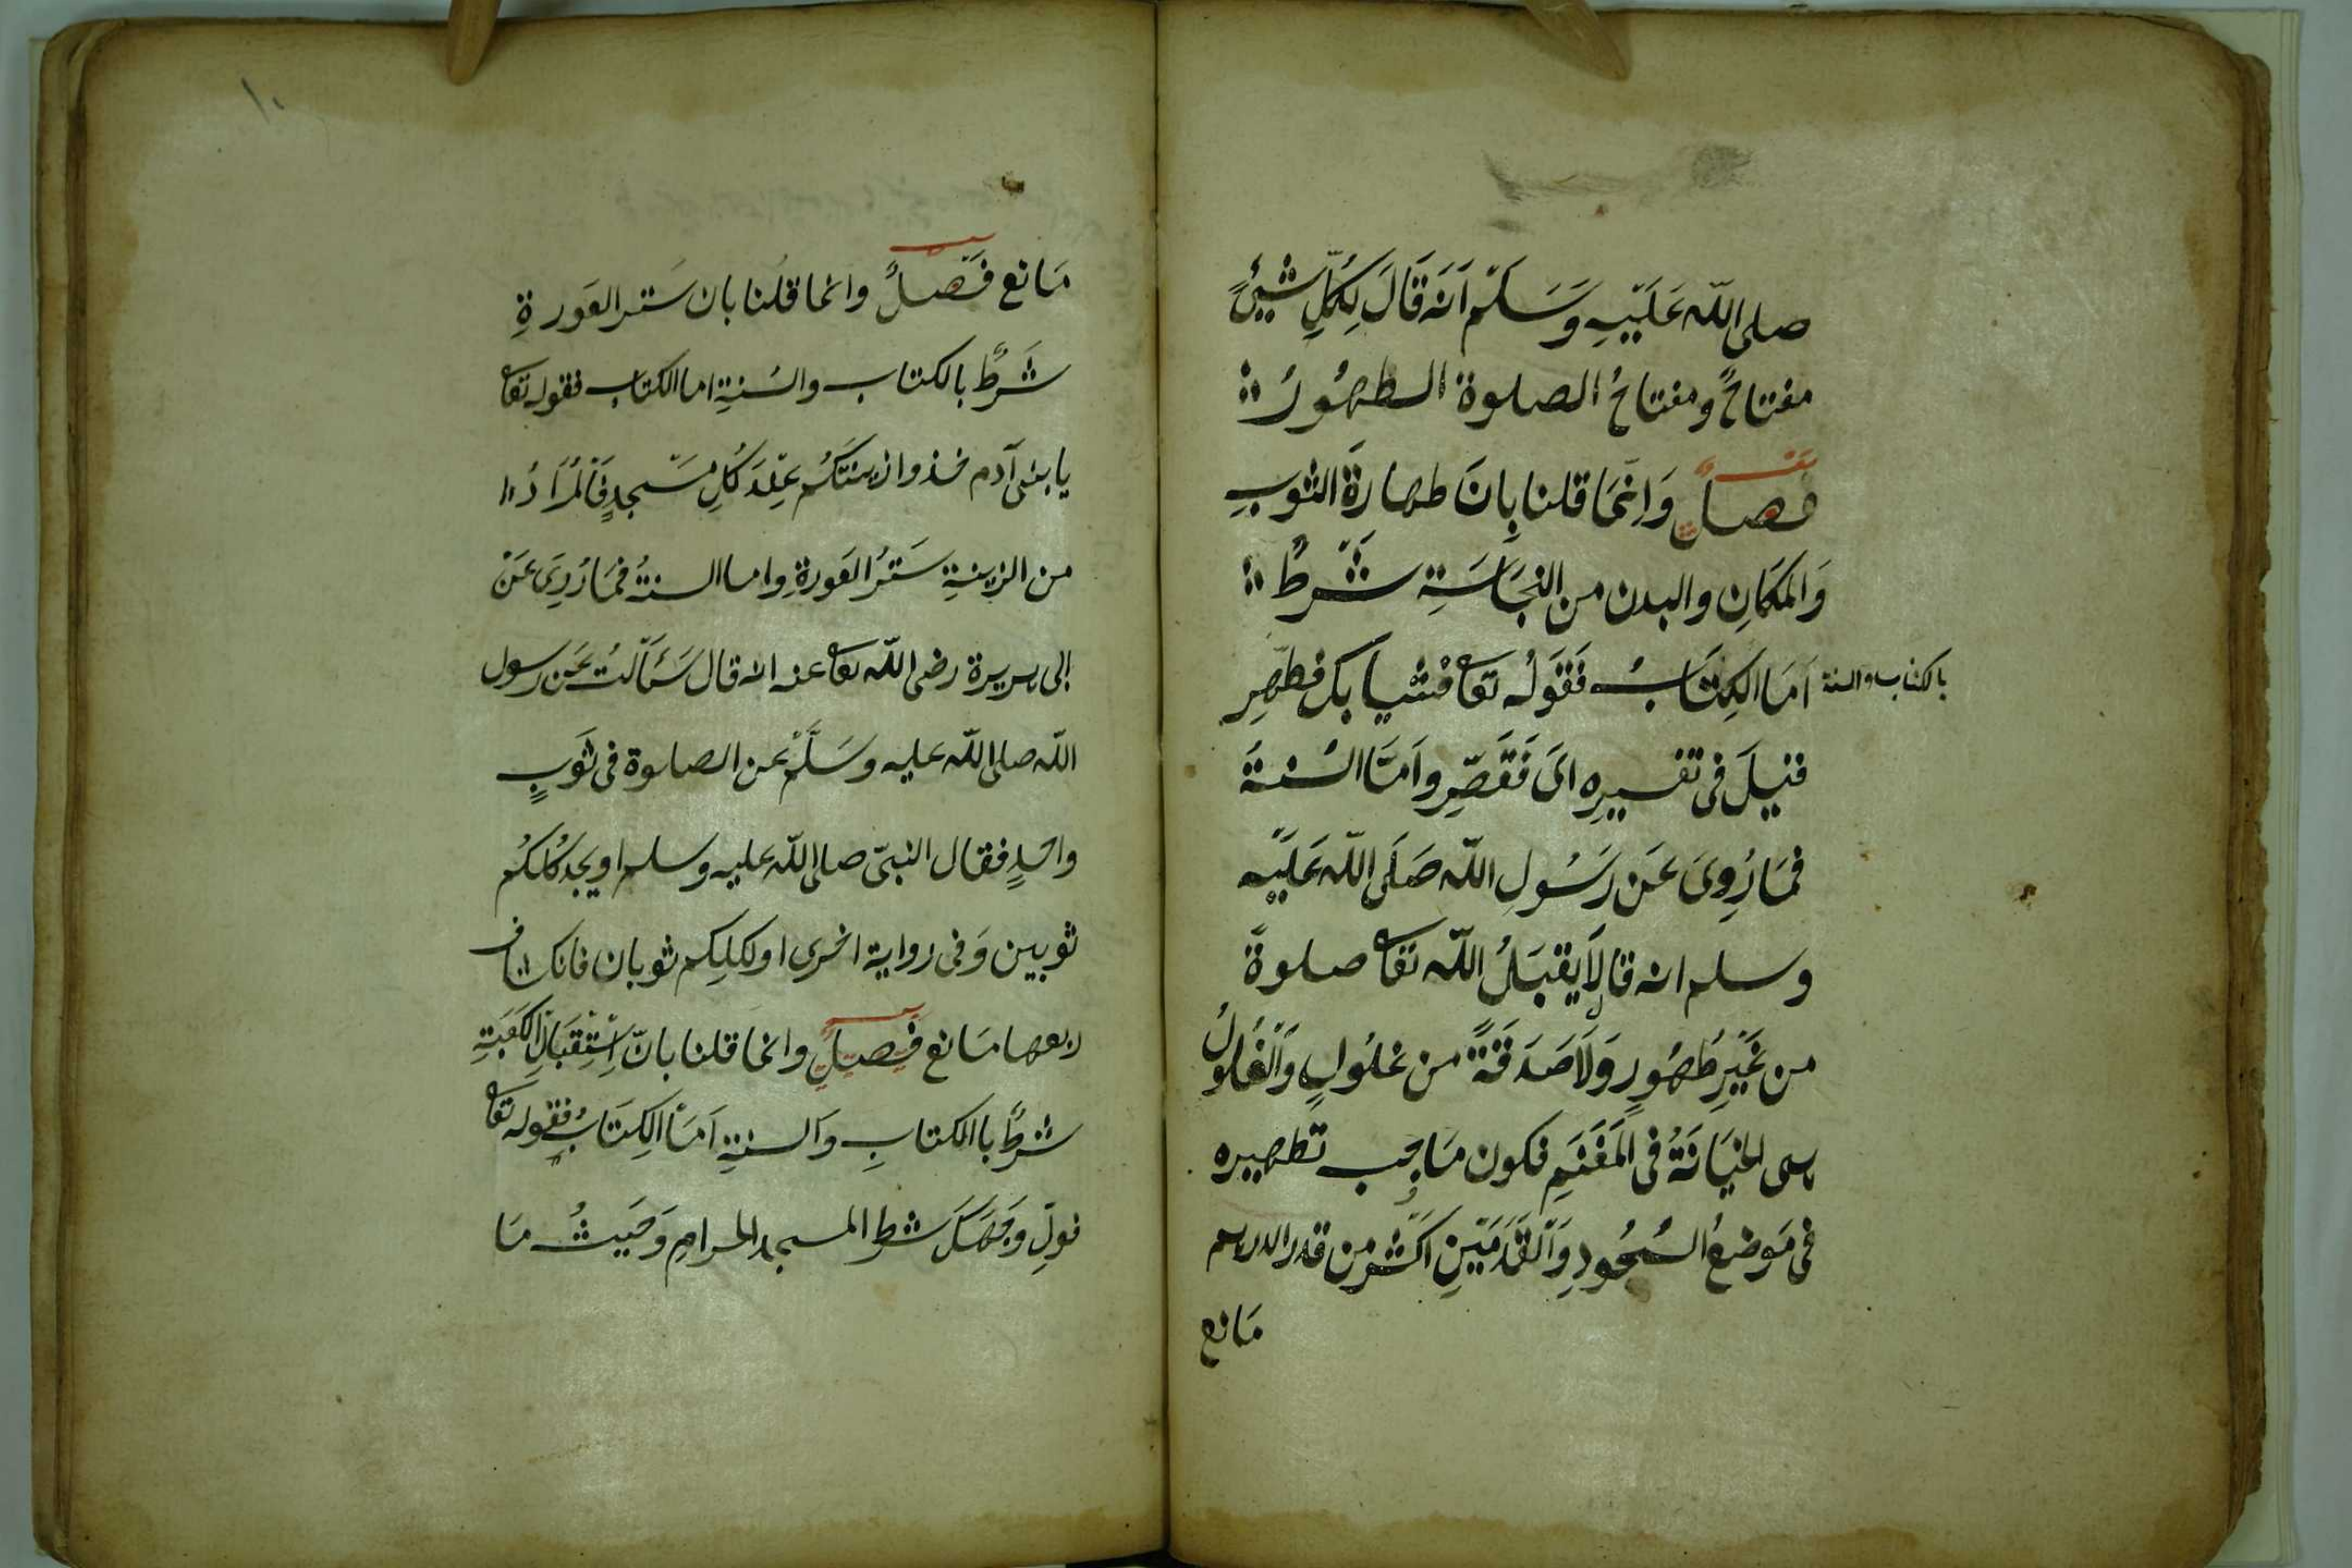 صلى اللّه عَلَيْهِ وَسَلَّم اَنَه قَالَ لِكُلِّ شَيْئٍ
مفتاحٌ ومفتاحُ الصلوة الطهُورُ
فصلٌ وَاِنَّمَا قلنا بِانَ طهارةَ الثوبِ
وَالمكَانِ والبدن من النجَاسَةِ شَرطٌ
بالكتاب والسنة اَمَا الكِتَابُ فَقَولُه تعا فثيابك فطهِر
فقيلَ فى تفسيرِه اىَ فَقَصِّر واَمَّا السُنةَ
فمَا رُوِىَ عَن رَسُولِ اللّه صَلَى اللّه عَلَيْه
وسلم انه قال لَا يقبَلُ اللّه تعا صلوةً
من غَيْرِ طُهُورٍ وَلَا صَدَقَةً من غلُولٍ وَالغُلوُلُ
هى الخيَانَةُ فى المَغْنَمِ فكون مَا يجب تطهيره
فى مَوضعُ السُجُودِ وَالقَدَمَيْنِ اَكثر من قدر الدرهم
مَانع
١٠
مَانع فَصلٌ وانما قلنا بان سَتر العَورةِ
شَرطٌ بالكتاب والسُنةِ اما الكتاب فقوله تعا
يا بنى آدم خذوا زينتكُم عِنْدَ كُلِ مَسْجدٍ فَالمُرَادُ
من الزينةِ سَترُ العَورةِ واما السنةُ فمَا رُوِىَ عَنْ
ابى هريرة رضى اللّه تعا عنه انه قال سَئَالتُ عَن رسول
اللّه صلى اللّه عليه وسَلَّمْ عن الصلوة فى ثَوبٍ
واحدٍ فقال النبىّ صلى اللّه عليه وسلم او يجد كُلكُم
ثوبين وَفى رواية اخرى او لكلكم ثوبان فانكشاف
ربعها مَانع فصلٌ وانمَا قلنا بانّ اِسْتِقْبَالَ الكَعْبَةِ
شرطٌ باالكتابِ وَالسنةِ اَمَّا الكِتَابُ فقوله تعَا
فولِ وَجهَكَ شطر المسجد الحرامِ وَحَيثُ مَا